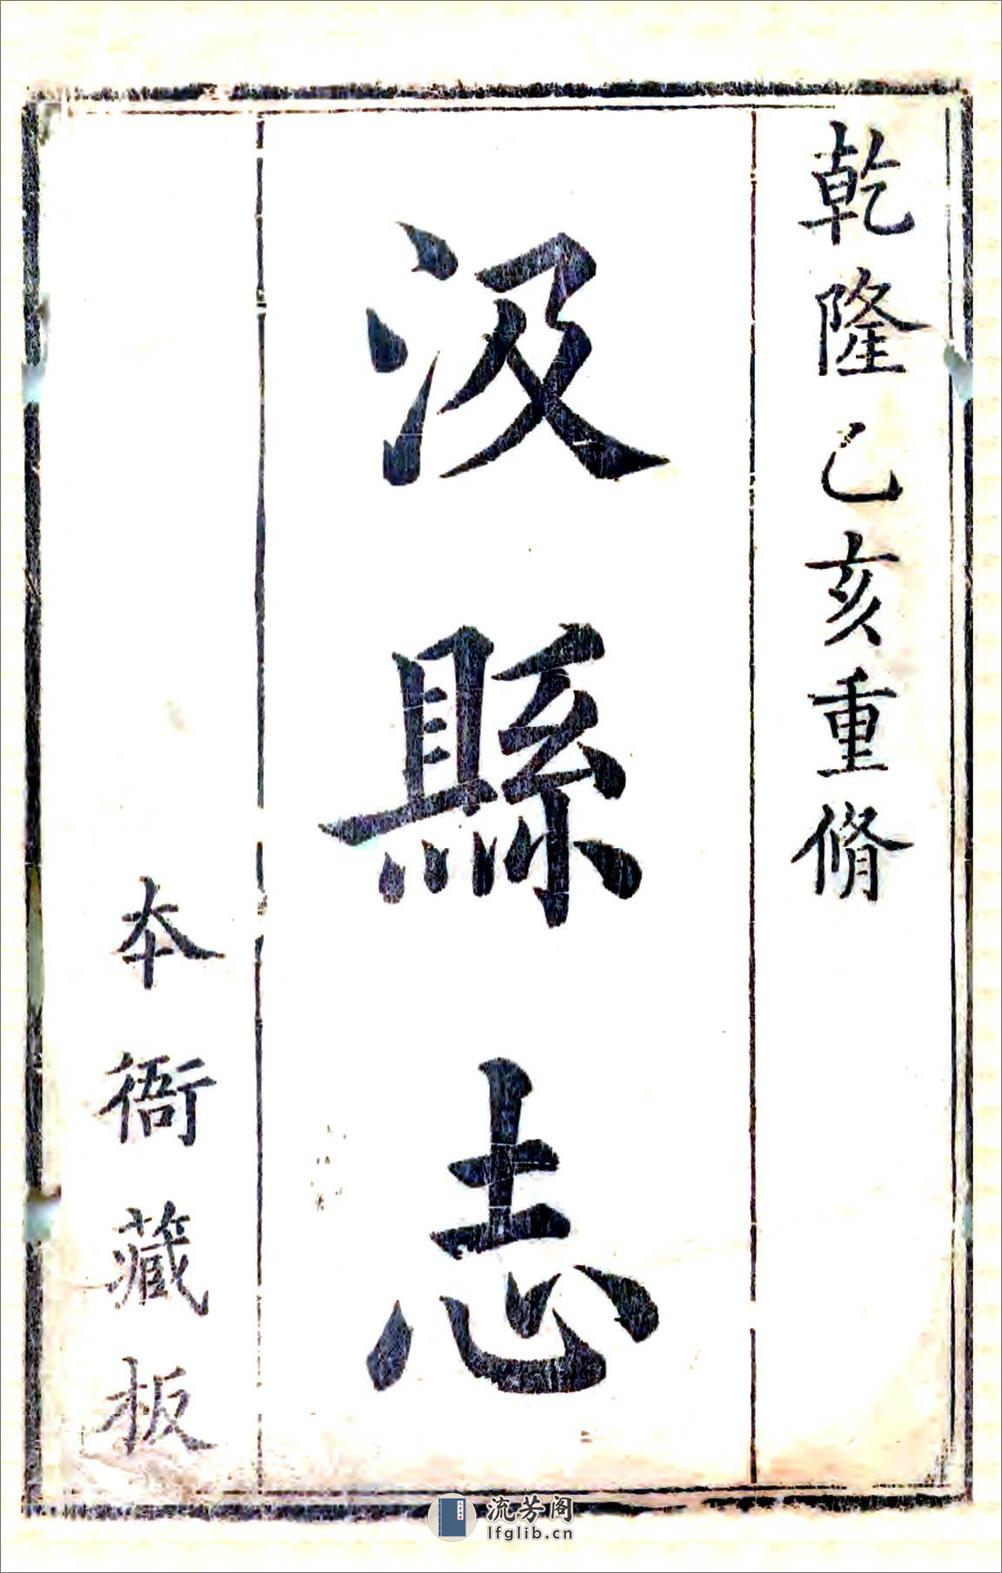 乾隆乙亥重脩
汲縣志
本衙藏板
流芳阁
lfglib.cn